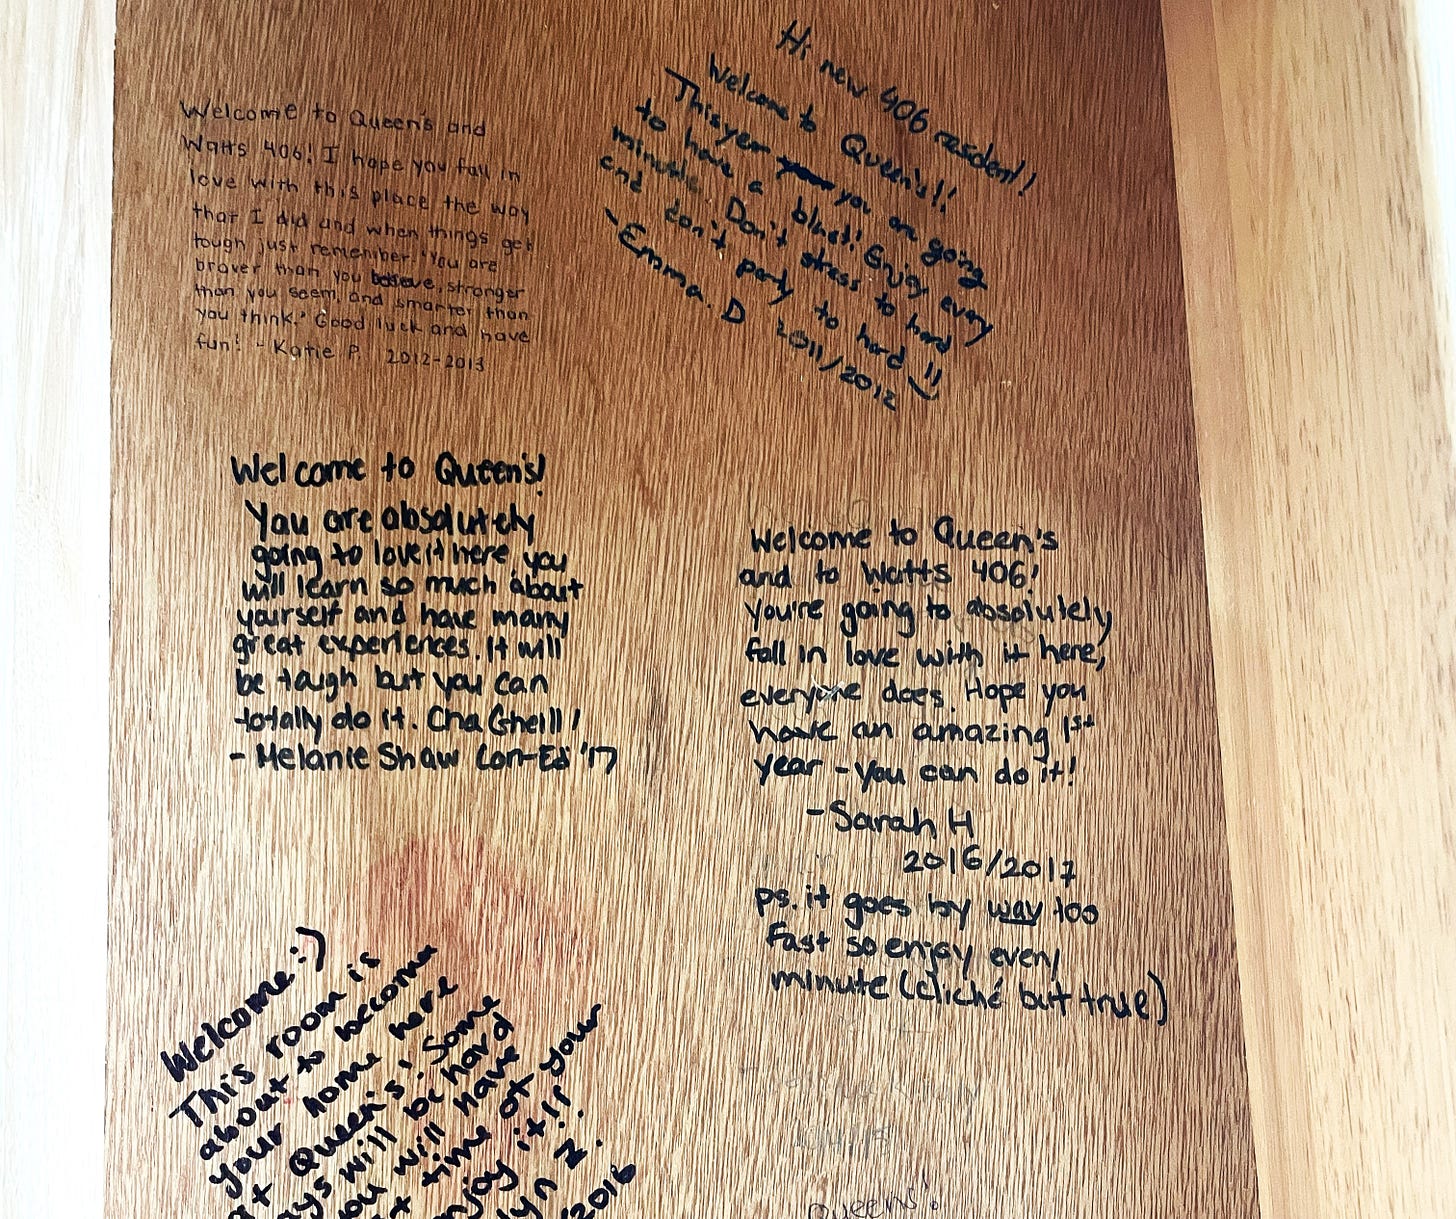 Welcome to Queen's and
Watts 406! I hope you fall in
love with this place the way
that I did and when things get
tough just remember, "You are
braver than you believe, stronger
than you seem, and smarter than
you think." Good luck and have
fun! - Katie P. 2012-2013
Hi new 406 resident!
Welcome to Queen's!!
This yer you are going
to have a blast! Enjoy every
minute. Don't stress to hard
and don't party to hard !!
- Emma. D 2011/2012
Welcome to Queen's!
You are absolutely
going to love it here you
will learn so much about
yourself and have many
great experiences. It will
be tough but you can
totally do it. Cha Gheill!
- Melanie Shaw Con-Ed '17
Welcome to Queen's
and to Watts 406!
you're going to absolutely
fall in love with it here,
everyone does. Hope you
have an amazing 1st
year - you can do it!
- Sarah H
2016/2017
ps. it goes by way too
Fast so enjoy every
minute (cliché but true)
Welcome :)
This room is
about to become
your home here
at Queen's! Some
days will be hard
you will have
time of your
enjoy it!!
N.
/2016
Queens!